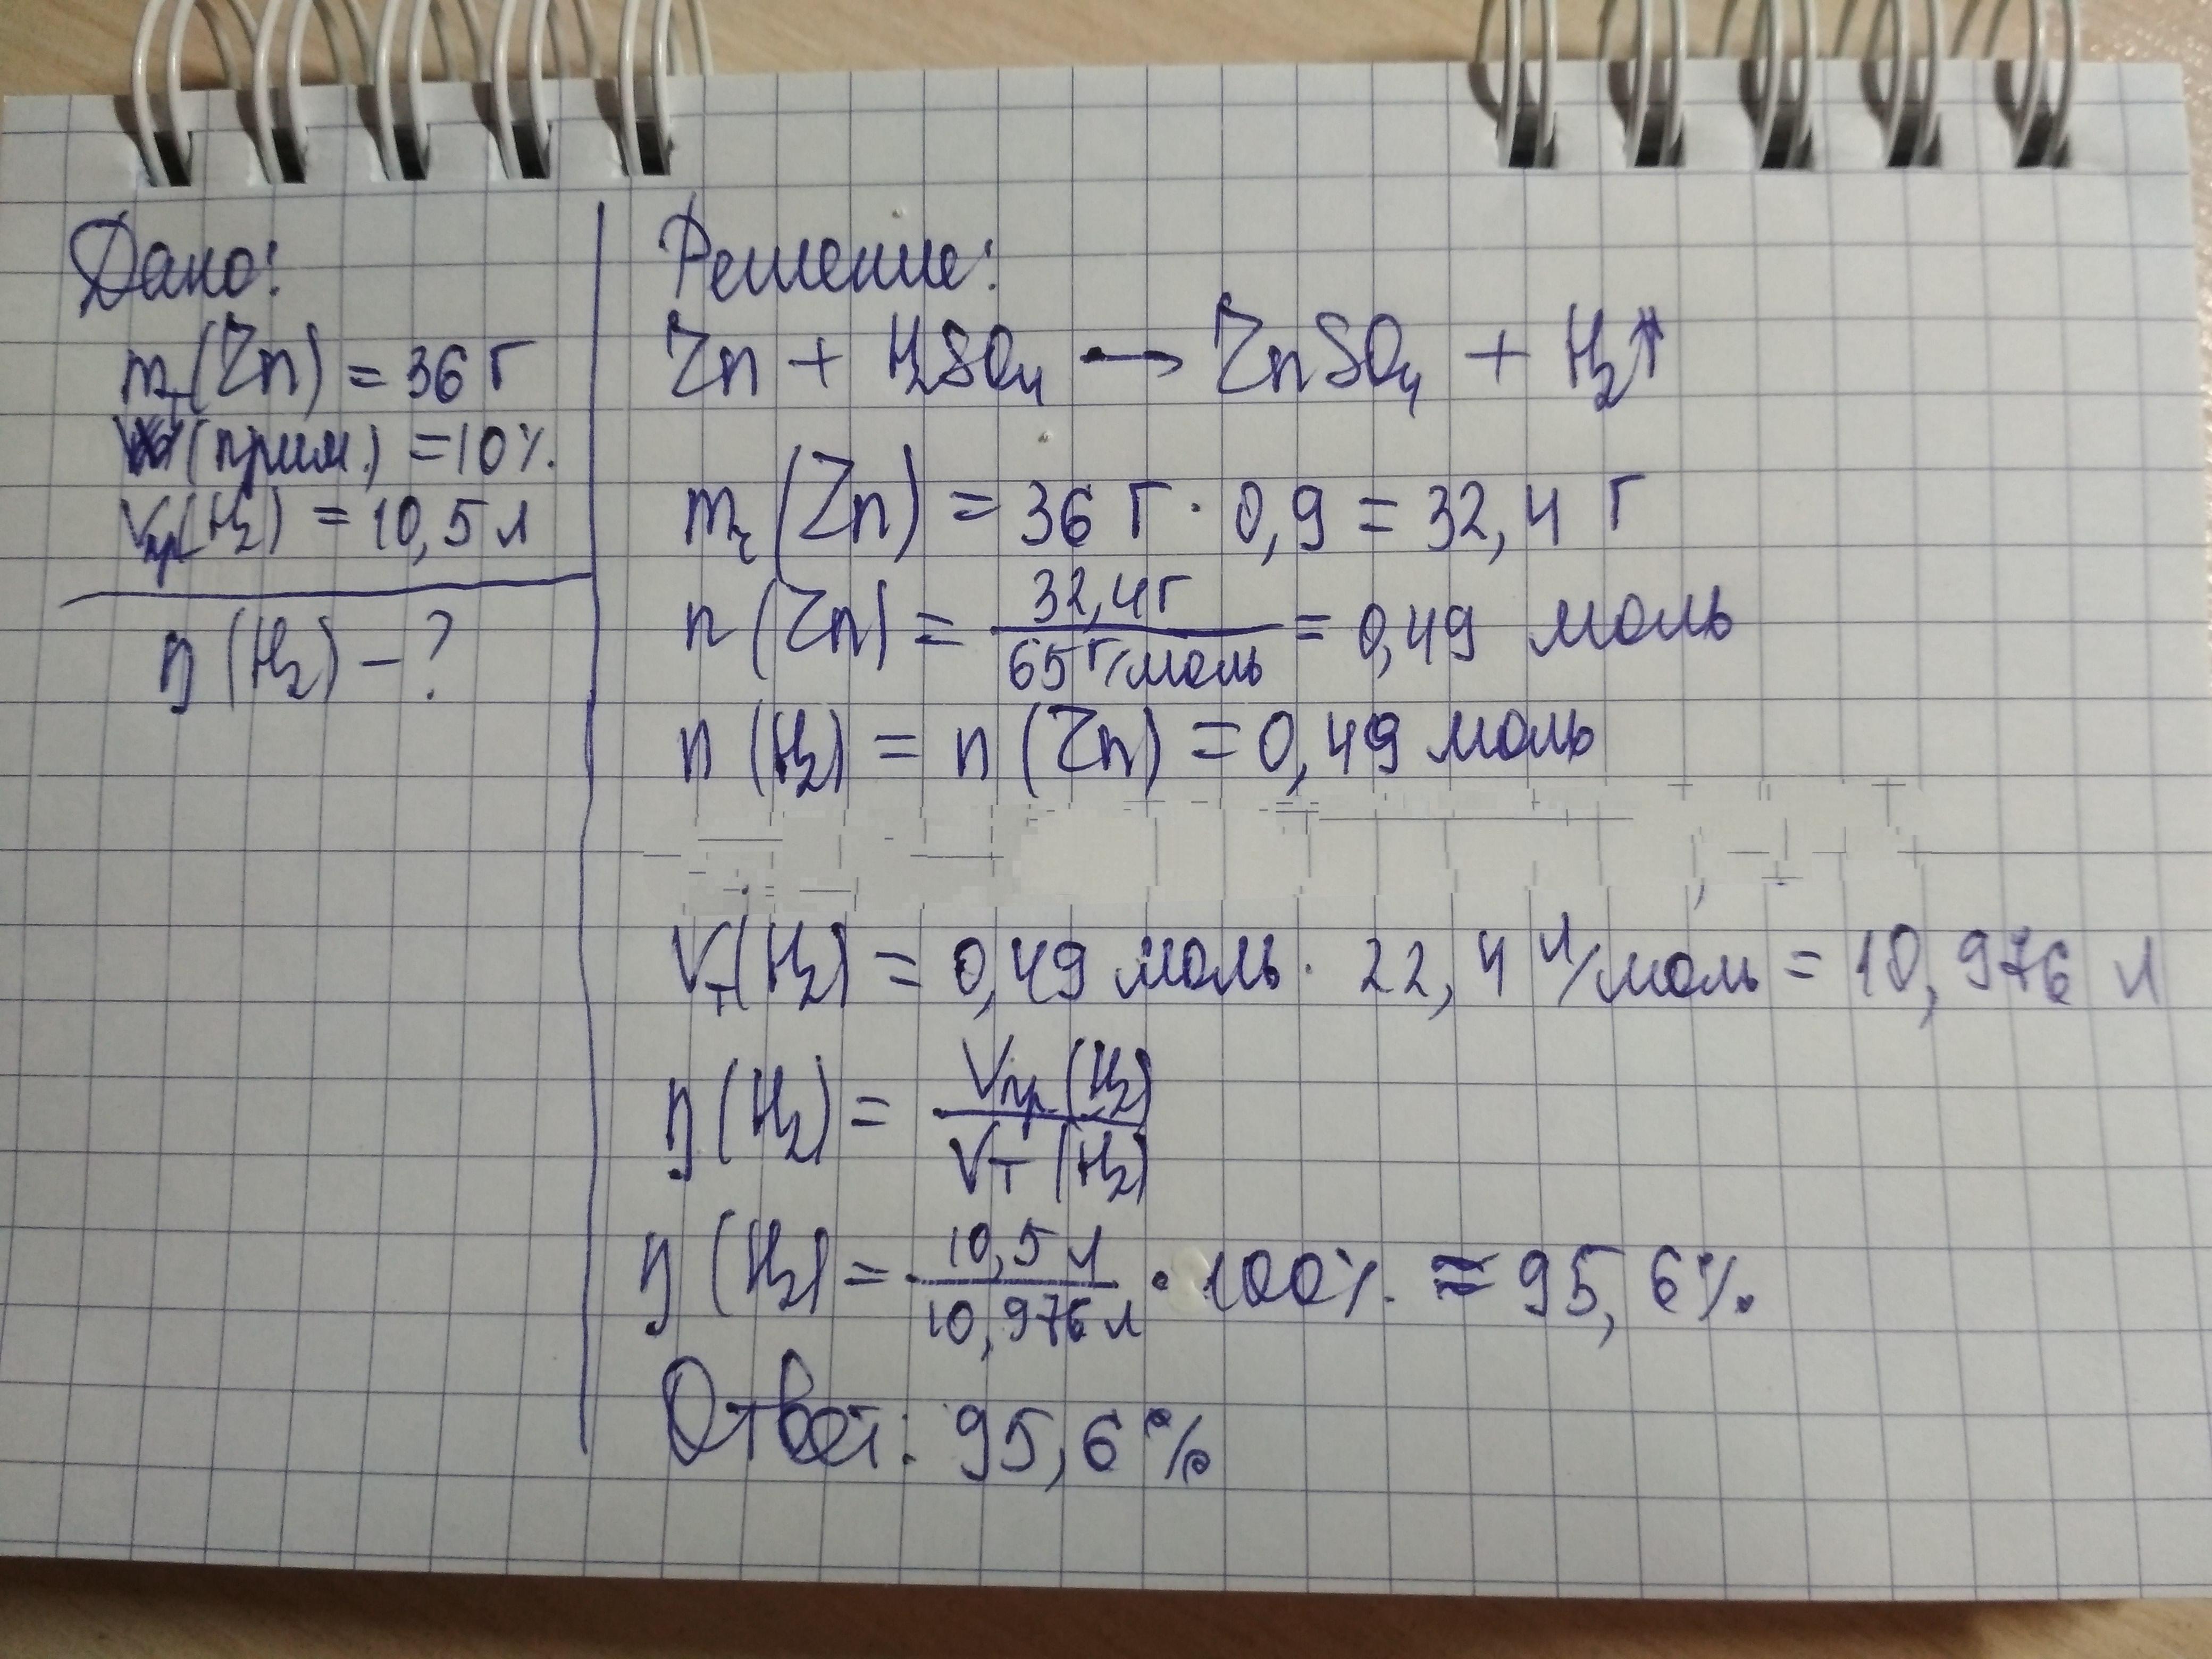 Дано:
m_т(Zn) = 36 г
W(прим.) = 10%.
Vпр(H₂) = 10,5 л
η (H₂) – ?
Решение:
Zn + H₂SO₄ → ZnSO₄ + H₂↑
m_ч (Zn) = 36 г · 0,9 = 32,4 г
n (Zn) = 32,4г / 65 г/моль = 0,49 моль
n (H₂) = n (Zn) = 0,49 моль
Vт(H₂) = 0,49 моль · 22,4 л/моль = 10,976 л
η (H₂) = Vпр (H₂) / Vт (H₂)
η (H₂) = 10,5 л / 10,976 л · 100%. ≈ 95,6%.
Ответ: 95,6%